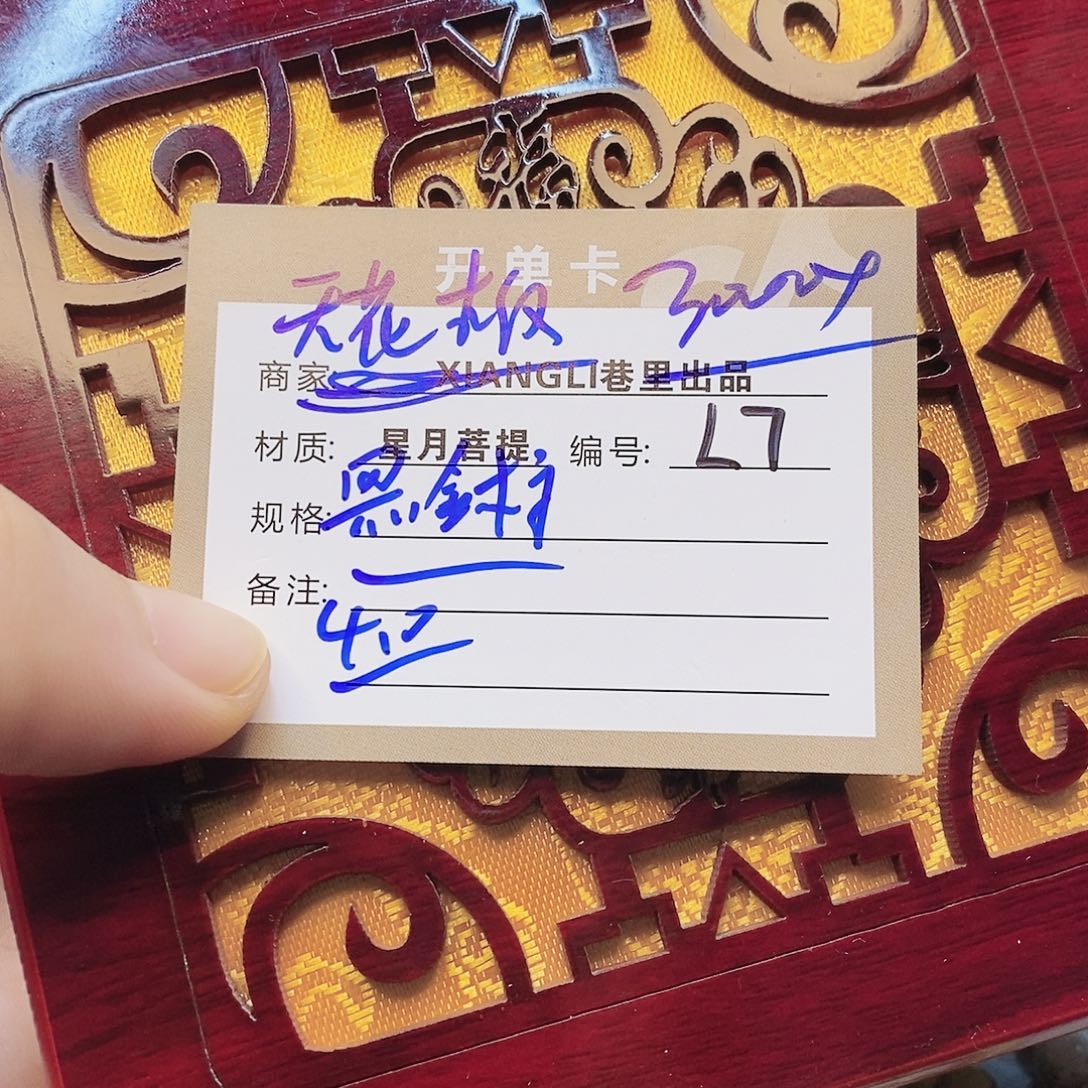 福
开单卡
天花板 3000Y
商家: XIANGLI巷里出品
材质: 星月菩提 编号: L7
规格: 黑金柱
备注: